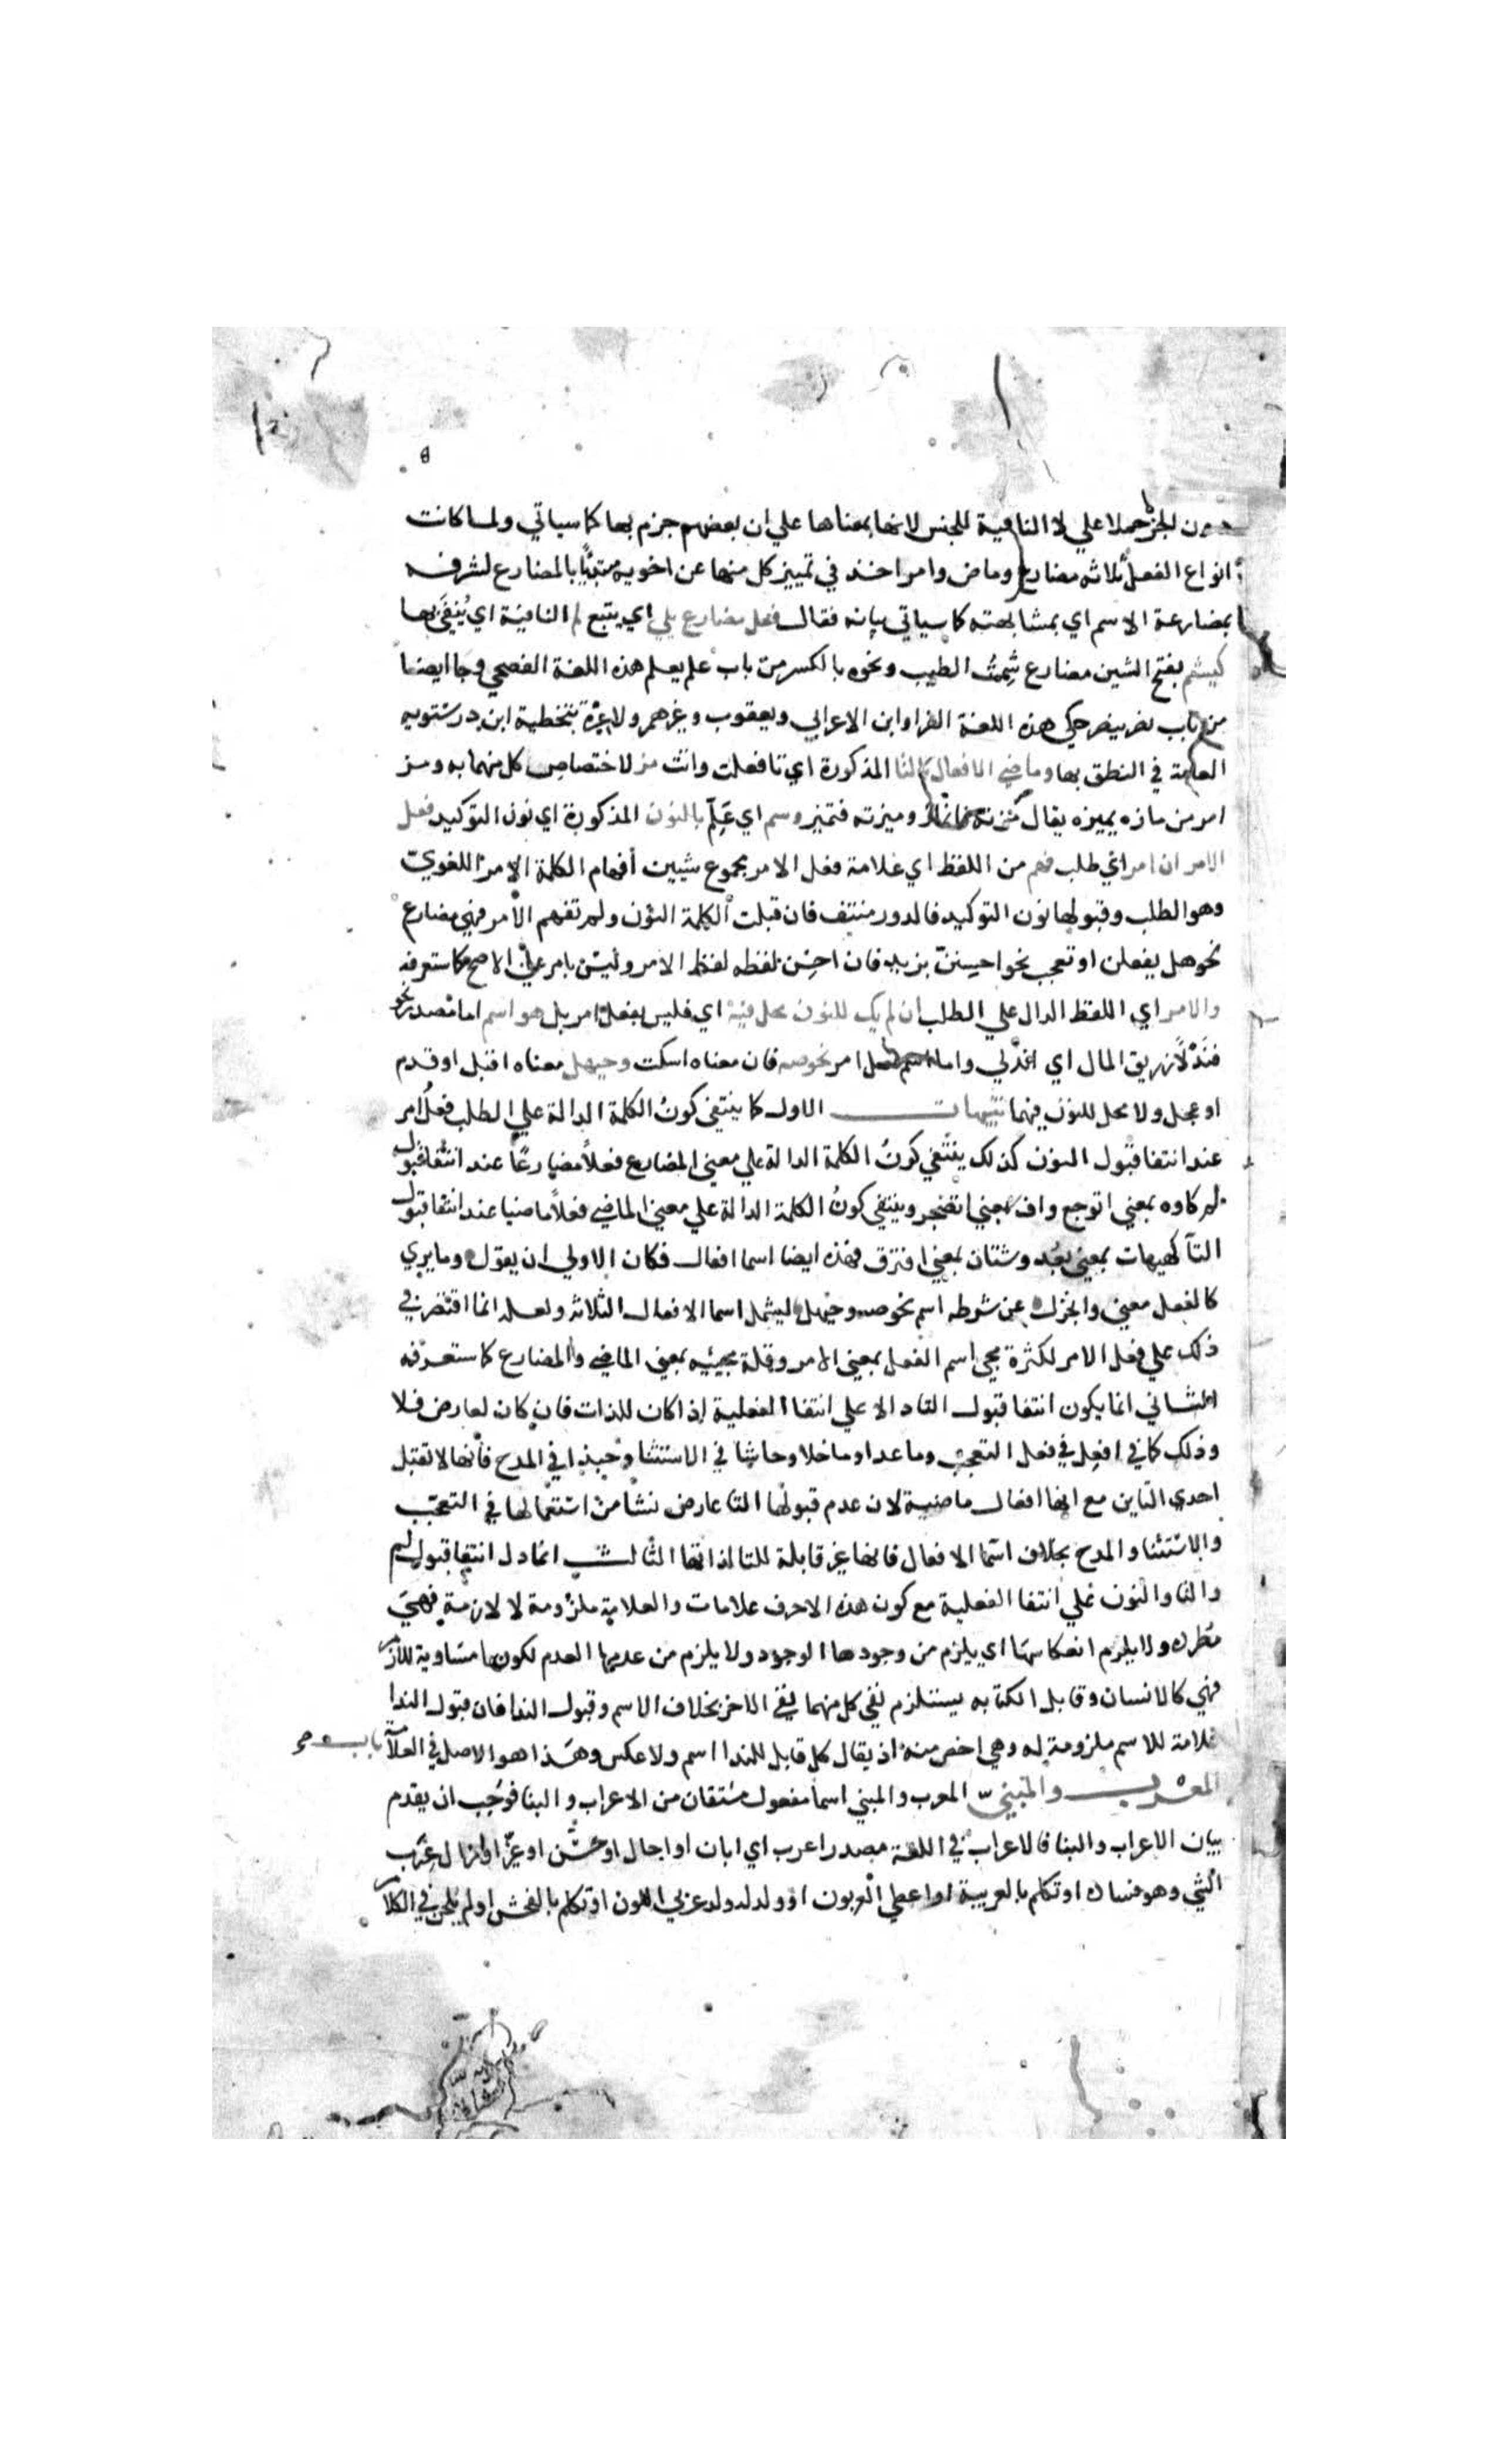 دون الجر حملا علي لا النافية للجنس لانها بمعناها علي ان بعضهم جزم بها كما سياتي ولما كانت
انواع الفعل ثلاثه مضارع وماض وامر اخذ في تمييز كل منها عن اخويه مبتديًا بالمضارع لشرفه
بمضارعة الاسم اي بمشابهته كما سياتي بيانه فقال فعل مضارع يلي اي يتبع لم النافية اي يُنفَى بها
كيشم بفتح الشين مضارع شِممتُ الطيب ونحوه بالكسر من باب علم يعلم هذه اللغة الفصحي وجا ايضا
من باب نصر ينصر حكي هذه اللغة الفرا وابن الاعرابي ويعقوب وغيرهم ولا عِبْرة بتخطية ابن درستويه
العامة في النطق بها وماضي الافعال بالتا المذكورة اي تا فعلت وانت مز لاختصاص كل منهما به ومز
امر من مازه يميزه يقال مزته فانماز وميزته فتميز وسم اي عَلِّم بالنون المذكورة اي نون التوكيد فعل
الامر ان امر اي طلب فهم من اللفظ اي علامة فعل الامر مجموع شيين افهام الكلمة الامر اللغويّ
وهو الطلب وقبولها نون التوكيد فالدور منتف فان قبلت الكلمة النون ولم تفهم الامر فهي مضارع
نحو هل يفعلن او تعجب نحو احسننّ بزيد فان احسِن لفظه لفظ الامر وليس بامر علي الاصح كما ستعرفه
والامر اي اللفظ الدال علي الطلب ان لم يك للنون محل فيه اي فليس بفعل امر بل هو اسم اما مصدر نحو
فنَدْلًا زريق المال اي اندُلي واما اسم فعل امر نحو صه فان معناه اسكت وحيهل معناه اقبل او قدم
او عجل ولا محل للنون فيهما تنبيهات الاول كما ينتفي كونُ الكلمة الدالة علي الطلب فعلُ امر
عند انتفا قبول النون كذلك ينتفي كونُ الكلمة الدالة علي معني المضارع فعلًا مضارعًا عند انتفا قبول
لم كاوه بمعني اتوجع واف بمعني اتضجر وينتفي كونُ الكلمة الدالة علي معني الماضي فعلًا ماضيا عند انتفا قبول
التا كهيهات بمعني بعُد وشتان بمعني افترق فهذه ايضا اسما افعال فكان الاولي ان يقول وما يري
كالفعل معني وانخزل عن شرطه اسم نحو صه وحيهل ليشمل اسما الافعال الثلاثة ولعله انما اقتصر في
ذلك علي فعل الامر لكثرة مجي اسم الفعل بمعني الامر وقلة مجييه بمعني الماضي والمضارع كما ستعرفه
الثاني انما يكون انتفا قبول التا دالا علي انتفا الفعلية اذا كان للذات فان كان لعارض فلا
وذلك كما في افعِل في فعل التعجب وما عدا وما خلا وحاشا في الاستثنا وحبذا في المدح فانها لا تقبل
احدي التاين مع انها افعال ماضية لان عدم قبولها التا عارض نشا من استعمالها في التعجب
والاستثنا والمدح بخلاف اسما الافعال فانها غير قابلة للتا لذاتها الثالث انما دل انتفا قبول لم
والتا والنون علي انتفا الفعلية مع كون هذه الاحرف علامات والعلامة ملزومة لا لازمة فهي
مطردة ولا يلزم انعكاسها اي يلزم من وجودها الوجود ولا يلزم من عدمها العدم لكونها مساوية للازم
فهي كالانسان وقابل الكتابه يستلزم نفي كل منهما نفي الاخر بخلاف الاسم وقبول الندا فان قبول الندا
علامة للاسم ملزومة له وهي اخص منه اذ يقال كل قابل للندا اسم ولا عكس وهذا هو الاصل في العلامة
المعرب والمبنيّ المعرب والمبني اسما مفعول مشتقان من الاعراب والبنا فوجب ان يقدم
بيان الاعراب والبنا فالاعراب في اللغة مصدر اعرب اي ابان او اجال او حسَّن او غيّر او ازال عَرَب
الشي وهو فساده او تكلم بالعربية او اعطي العربون او ولد له ولد عربي اللون او تكلم بالفحش او لم يلحن في الكلام